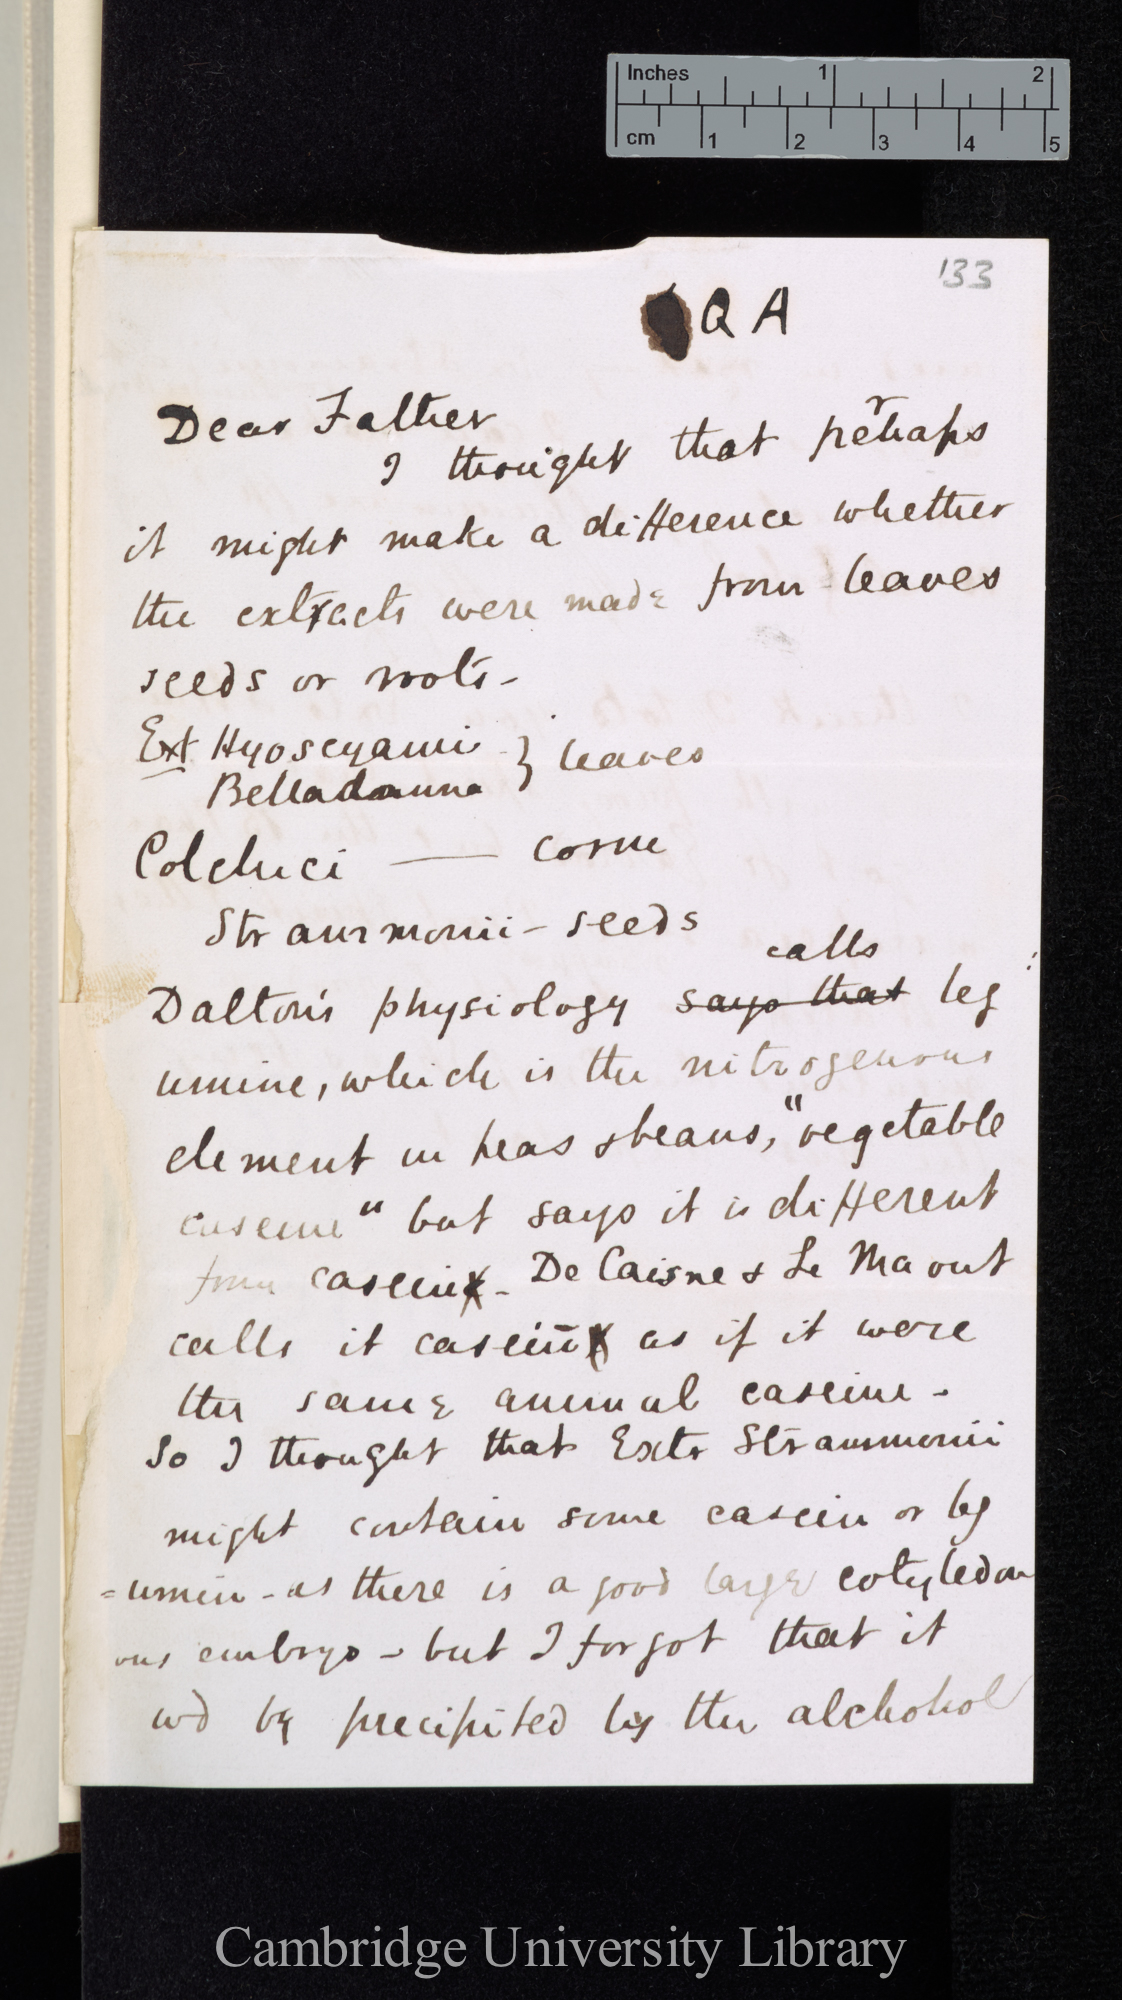 Inches 1 2
cm 1 2 3 4 5
133
Q A
Dear Father
I thought that perhaps
it might make a difference whether
the extracts were made from leaves
seeds or roots -
Ext Hyoscyami } leaves
Belladonna
Colchici — corm
Strammonii - seeds
calls
Dalton's physiology says that leg
umine, which is the nitrogenous
element in peas & beans, "vegetable
caseine" but says it is different
from casein - De Caisne & Le Maout
calls it casein as if it were
the same animal caseine -
So I thought that Extr Strammonii
might contain some casein or leg
=umin - as there is a good large cotyledon
ous embryo - but I forgot that it
wd be precipited by the alchohol
Cambridge University Library